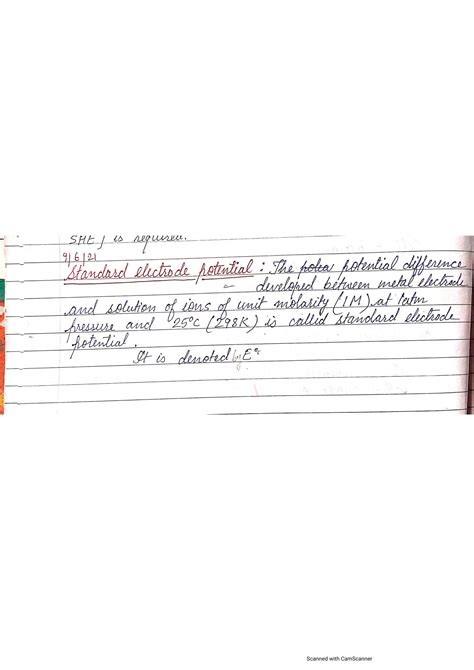 SHE) is required.
9/6/21
Standard electrode potential : The potential difference
developed between metal electrode
and solution of ions of unit molarity (1M) at 1atm
pressure and 25°C (298K) is callid standard electrode
potential.
It is denoted by E°
Scanned with CamScanner